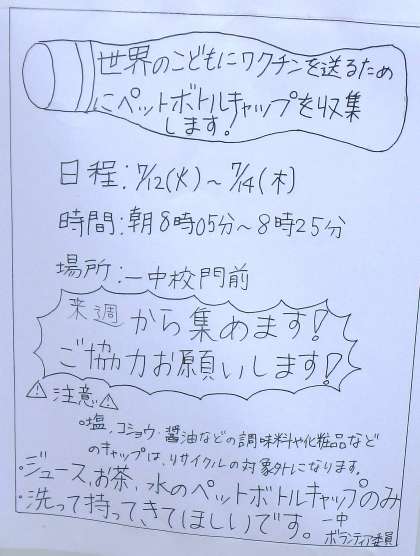 世界のこどもにワクチンを送るため
にペットボトルキャップを収集
します。
日程:7/12(火)~7/14(木)
時間:朝8時05分~8時25分
場所:一中校門前
来週から集めます!
ご協力お願いします!
⚠注意⚠
・塩、コショウ・醤油などの調味料や化粧品など
のキャップは、リサイクルの対象外になります。
・ジュース、お茶、水のペットボトルキャップのみ
洗って持ってきてほしいです。
一中
ボランティア委員